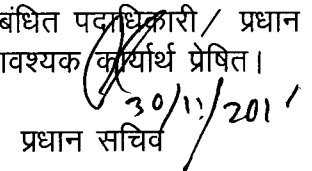 बंधित पदाधिकारी / प्रधान
ावश्यक कार्यार्थ प्रेषित।
30/11/201
प्रधान सचिव